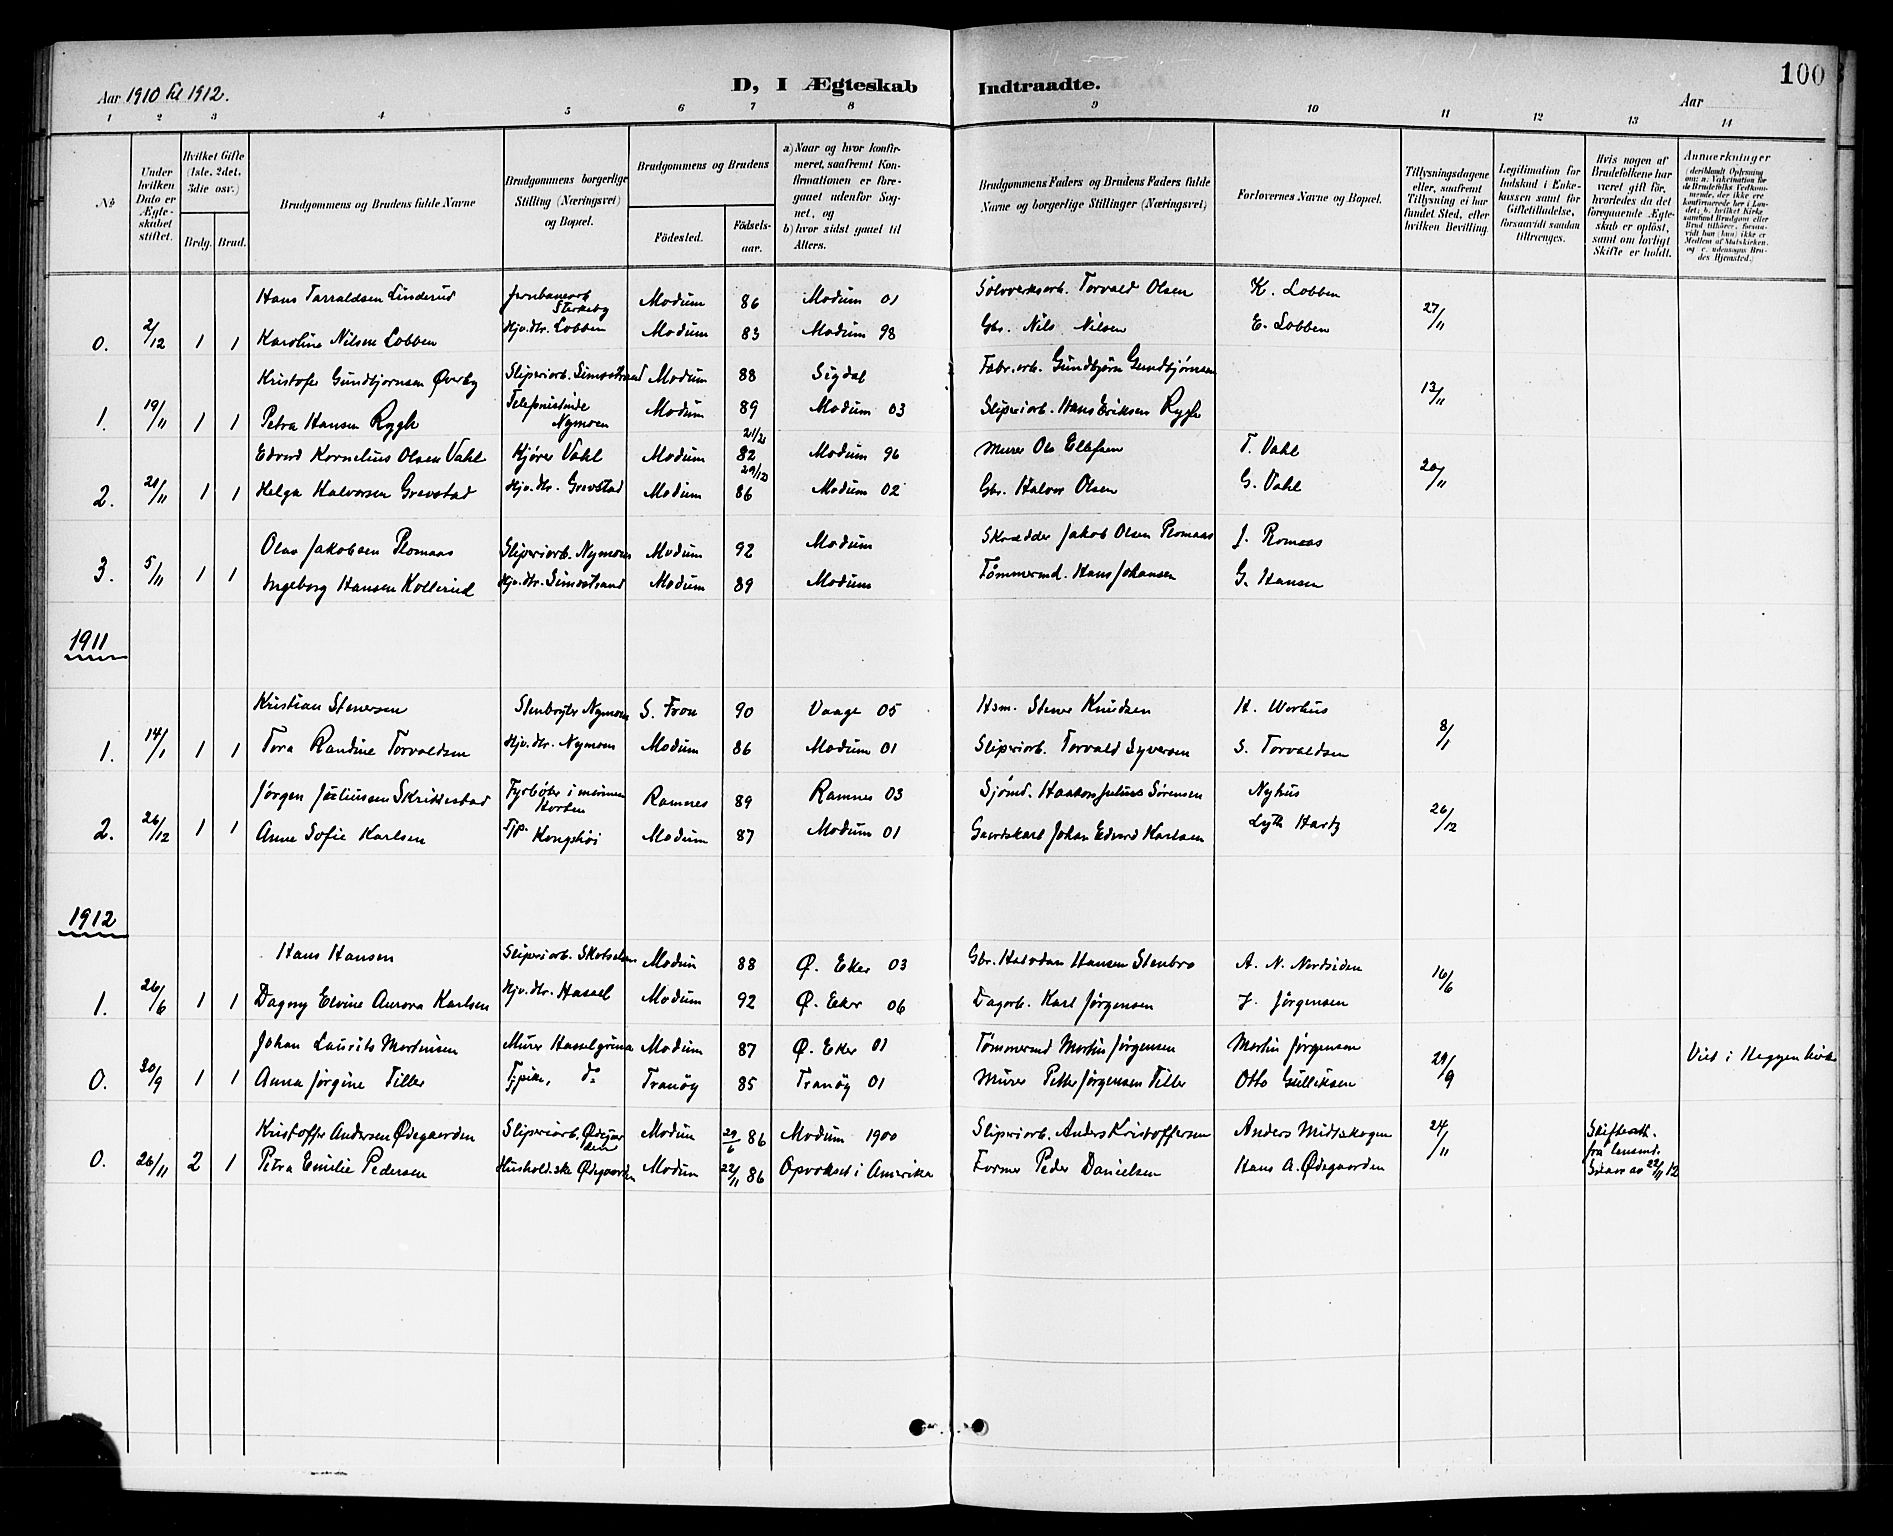 Aar 1910 til 1912.
D, I Ægteskab
Indtraadte.
Aar
100
1 2 3 4 5 6 7 8 9 10 11 12 13 14
No
Under hvilken Dato er Ægteskabet stiftet.
Hvilket Gifte (1ste, 2det, 3die osv.)
Brdg. Brud.
Brudgommens og Brudens fulde Navne
Brudgommens borgerlige Stilling (Næringsvei) og Bopæl.
Brudgommens og Brudens
Födested.
Födselsaar.
a) Naar og hvor konfirmeret, saafremt Konfirmationen er foregaaet udenfor Sognet, og
b) hvor sidst gaaet til Alters.
Brudgommens Faders og Brudens Faders fulde Navne og borgerlige Stillinger (Næringsvei)
Forlovernes Navne og Bopæl.
Tillysningsdagene eller, saafremt Tillysning ei har fundet Sted, efter hvilken Bevilling.
Legitimation for Indskud i Enkekassen samt for Giftetilladelse, forsaavidt saadan tiltrænges.
Hvis nogen af Brudefolkene har været gift för, hvorledes da det foregaaende Ægteskab er oplöst, samt om lovligt Skifte er holdt.
Anmærkninger
Hans Tarraldsen Linderud Jernbanearb. Sterkeby Modum 86 Modum 01 Sölvverksarb. Torvald Olsen K. Lobben
0. 2/12 1 1 Karoline Nilsen Lobben Hjv. dtr. Lobben Modum 83 Modum 98 Gbr. Nils Nilsen E. Lobben 27/11
Kristofer Gundbjørnsen Øverby Sliperiarb. Simostrand Modum 88 Sigdal Fabr. arb. Gundbjørn Gundbjørnsen
1. 19/11 1 1 Petra Hansen Rygh Telefonistinde Nymoen Modum 89 Modum 03 Sliperiarb. Hans Eriksen Rygh 13/11
Edvard Kornelius Olsen Vahl Kjører Vahl Modum 82 Modum 96 Murer Ole Ellefsen T. Vahl
2. /11 1 1 Helga Halvorsen Grevstad Hjv. dtr. Grevstad Modum 29/12 86 Modum 02 Gbr. Halvor Olsen G. Vahl 20/11
Olav Jakobsen Romaas Sliperiarb. Nymoen Modum 92 Modum Skrædder Jakob Olsen Romaas J. Romaas
3. 5/11 1 1 Ingeborg Hansen Kollerud Hjv. dtr. Simostrand Modum 89 Modum Tømmermd. Hans Johansen G. Hansen
1911
Kristian Stenersen Stenbryter Nymoen S. Fron 90 Vaage 05 Hsm. Stener Knudsen H. Worhus
1. 14/1 1 1 Tora Randine Torvaldsen Hjv. dtr. Nymoen Modum 86 Modum 01 Sliperiarb. Torvald Syversen S. Torvaldsen 8/1
Jørgen Juliussen Skriddestad Fyrbøter i marinen Horten Ramnes 89 Ramnes 03 Sjømd. Julius Sørensen Nyhus
2. 26/12 1 1 Anna Sofie Karlsen Tjp. Kongshøi Modum 87 Modum 01 Gaardskarl Johan Edvard Karlsen Lyth Hartz 26/12
1912
Hans Hansen Sliperiarb. Skotselven Modum 88 Ø. Eker 03 Gbr. Halvdan Hansen Stenbro A. N. Nordsiden
1. 26/6 1 1 Dagny Elvine Aurora Karlsen Hjv. dtr. Hassel Modum 92 Ø. Eker 06 Dagarb. Karl Jørgensen J. Jørgensen 16/6
Johan Laurits Martinsen Murer Hasselgruna Modum 87 Ø. Eker 01 Tømmermd Martin Jørgensen Martin Jørgensen
0. 30/9 1 1 Anna Jørgine Tiller Tjpike, do Tranøy 85 Tranøy 01 Murer Petter Jørgensen Tiller Otto Gulliksen 29/9 Viet i Heggen kirke
Kristoffer Andersen Ødegaarden Sliperiarb. Ødegaarden Modum 29/6 86 Modum 1900 Sliperiarb. Anders Kristoffersen Anders Midtskogen
0. 26/11 2 1 Petra Emilie Pedersen Hushold.ske Ødegaarden Modum 22/11 86 Opvokset i Amerika Former Peder Danielsen Hans A. Ødegaarden 24/11 Skifteatt. fra lensmd. av 22/11 12